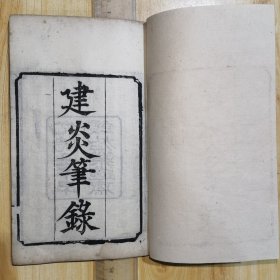 建炎筆錄